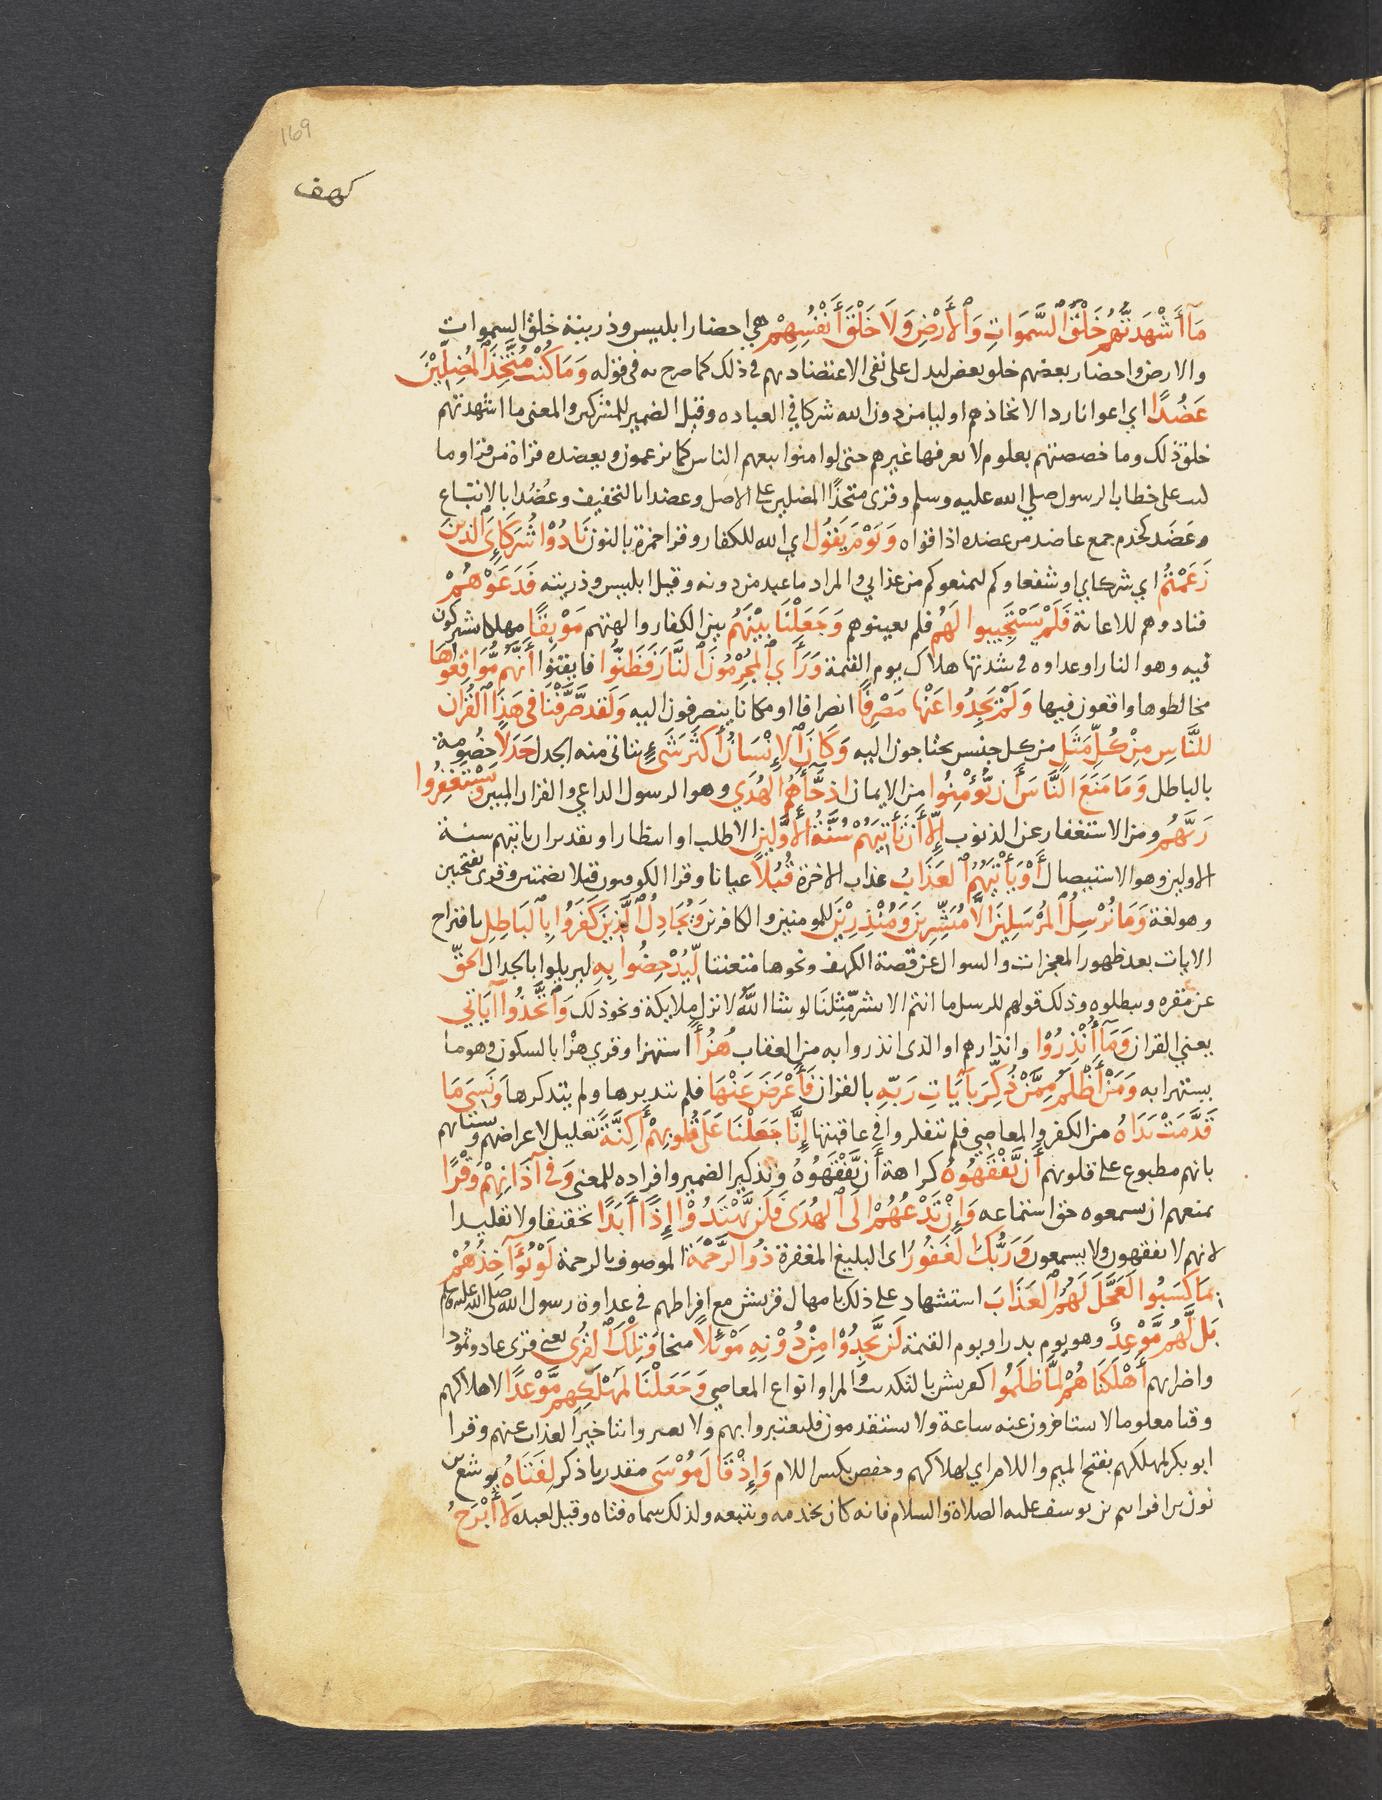 169
كهف
مَا أَشْهَدتُّهُمْ خَلْقَ ٱلسَّمَوَاتِ وَٱلْأَرْضِ وَلَا خَلْقَ أَنْفُسِهِمْ هي احضار ابليس وذريته خلق السموات
والارض واحضار بعضهم خلق بعض ليدل على نفى الاعتضاد بهم في ذلك كما صرح به فى قوله وَمَا كُنْتُ مُتَّخِذَ ٱلْمُضِلِّيْنَ
عَضُدًا اي اعوانا ردا لاتخاذهم اوليا من دون الله شركا في العباده وقيل الضمير للمشركين والمعنى ما اشهدتهم
خلق ذلك وما خصصتهم بعلوم لا يعرفها غيرهم حتى لو امنوا تبعهم الناس كما يزعمون ويعضده قراة من قرا وما
كنت على خطاب الرسول صلي الله عليه وسلم وقرى متخذًا المضلين على الاصل وعضدا بالتخفيف وعُضُدا بالاتباع
وعَضَد كخدم جمع عاضد من عضده اذا قواه وَيَوْمَ يَقُولُ اي الله للكفار وقرا حمزة بالنون نَادُوْا شُرَكَايَ ٱلَّذِينَ
زَعَمْتُمْ اي شركاي او شفعاوكم ليمنعوكم من عذابي والمراد ما عبد من دونه وقيل ابليس وذريته فَدَعَوْهُمْ
فنادوهم للاعانة فَلَمْ يَسْتَجِيبوا لَهُمْ فلم يعينوهم وَجَعَلْنَا بَيْنَهُمْ بين الكفار والهتهم مَوْبِقًا مهلكا يشتركون
فيه وهو النار او عداوه في شدتها هلاك يوم القيمة وَرَأَي ٱلْمُجْرِمُوْنَ ٱلنَّارَ فَظَنُّوا فايقنوا أَنَّهُم مُّوَاقِعُوهَا
مخالطوها واقعون فيها وَلَمْ يَجِدُوا عَنْهَا مَصْرِفًا انصرافا او مكانا ينصرفون اليه وَلَقَد صَّرَّفْنَا فِى هَذَا ٱلْقُرْآن
لِلنَّاسِ مِنْ كُلِّ مَثَلٍ من كل جنس يحتاجون اليه وَكَانَ ٱلْإِنْسَانُ أَكْثَرَ شَىْءٍ يتاتى منه الجدل جَدَلًا خصومة
بالباطل وَمَا مَنَعَ ٱلنَّاسَ أَن يُّؤْمِنُوا من الايمان اذ جَّآءَهُمُ الهُدَي وهو الرسول الداعي والقران المبين وَيَسْتَغْفِرُوا
رَبَّهُمْ ومن الاستغفار عن الذنوب إِلَّا أَنْ تَأْتِيَهُمْ سُنَّةُ الْأَوَّلِينَ الا طلب او انتظار او تقدير ان ياتيهم سنة
الاولين وهو الاستيصال أَوْ يَأْتِيَهُمُ ٱلْعَذَابُ عذاب الاخرة قُبُلًا عيانا وقرا الكوفيون قبلا بضمتين وقرى بفتحتين
وهو لغة وَمَا نُرْسِلُ ٱلْمُرْسَلِينَ اِلَّا مُبَشِّرِينَ وَمُنْذِرِيْنَ للمومنين والكافرين وَيُجَادِلُ ٱلَّذِينَ كَفَرُوا بِٱلْبَاطِلِ باقتراح
الايات بعد ظهور المعجزات والسوال عن قصة الكهف ونحوها متعنتا لِيُدْحِضُوا بِهِ ليزيلوا بالجدال الْحَقّ
عن مقره ويبطلوه وذلك قولهم للرسل ما انتم الا بشر مِّثْلُنَا لو شا اللَّهُ لانزل ملايكة ونحو ذلك وَٱتَّخَذُوا آيَاتِي
يعني القران وَمَآ أُنْذِرُوْا وانذارهم او الذى انذروا به من العقاب هُزُأً استهزا وقري هزْا بالسكون وهو ما
يستهزا به وَمَنْ أَظْلَمُ مِمَّنْ ذُكِّرَ بِآيَاتِ رَبِّهِ بالقران فَأَعْرَضَ عَنْهَا فلم يتدبرها ولم يتذكرها وَنَسِىَ مَا
قَدَّمَتْ يَدَاهُ من الكفر والمعاصي فلم يتفكروا في عاقبتها إِنَّا جَعَلْنَا عَلَى قُلُوبِهِمْ أَكِنَّةً تعليل لاعراضهم ونسيانهم
بانهم مطبوع على قلوبهم أَن يَّفْقَهُوهُ كراهة أن يَّفْقَهُوهُ وتذكير الضمير وافراده للمعنى وَفِي آذَانِهِمْ وَقْرًا
يمنعهم ان يسمعوه حق استماعه وَإِنْ تَدْعُهُمْ اِلَى ٱلْهُدَى فَلَن يَّهْتَدُوْا إِذًا أَبَدًا تحقيقا ولا تقليدا
لانهم لا يفقهون ولا يسمعون وَرَبُّكَ ٱلْغَفُورُ اى البليغ المغفرة ذُو الرَّحْمَة الموصوف بالرحمة لَوْ يُؤَآخِذُهُمْ
بِمَا كَسَبُوا لَعَجَّلَ لَهُمُ ٱلْعَذَابَ استشهاد على ذلك بامهال قريش مع افراطهم في عداوة رسول الله صلى الله عليه وسلم
بَل لَّهُمْ مَّوْعِدٌ وهو يوم بدر او يوم القيمة لَن يَّجِدُوْا مِنْ دُوْنِهِ مَوْئِلًا منجا وَتِلْكَ ٱلْقُرَى يعنى قرى عاد وثمود
واضرابهم أَهْلَكْنَاهُمْ لَمَّا ظَلَمُوا كقريش بالتكذيب والمرا وانواع المعاصي وَجَعَلْنَا لِمَهْلَكِهِم مَّوْعِدًا لاهلاكهم
وقتا معلوما لا يستاخرون عنه ساعة ولا يستقدمون فليعتبروا بهم ولا يغتروا بتاخير العذاب عنهم وقرا
ابو بكر لمهلكهم بفتح الميم واللام اي لهلاكهم وحفص بكسر اللام وَإِذْ قَالَ مُوْسَى مقدر باذكر لِفَتَاهُ يوشع بن
نون بن افراثيم بن يوسف عليه الصلاة والسلام فانه كان يخدمه ويتبعه ولذلك سماه فتاه وقيل لعبده لَا أَبْرَحُ